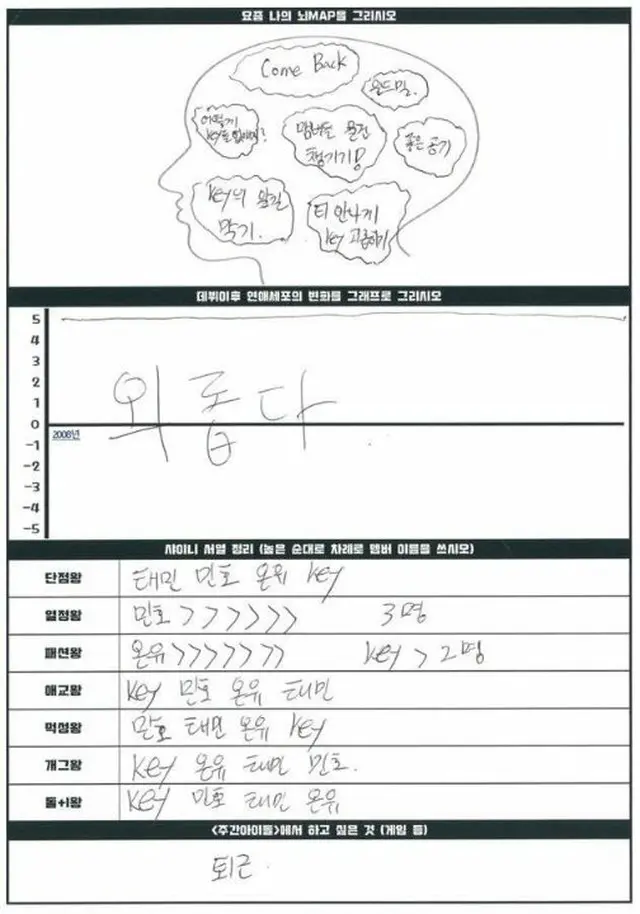 요즘 나의 뇌MAP을 그리시오
Come Back
월드밀.
어떻게
key를 없애지?
멤버들 물건
챙기기!
좋은 공기
key의 왕길
막기.
티 안나게
key 괴롭히기
데뷔이후 연애세포의 변화를 그래프로 그리시오
5
4
3
2
1
0
-1
-2
-3
-4
-5
2008년
외롭다.
샤이니 서열 정리 (높은 순대로 차례로 멤버 이름을 쓰시오)
단점왕 태민 민호 온유 key
일정왕 민호 >>>>>>> 3명
패션왕 온유 >>>>>>>> key > 2명
애교왕 key 민호 온유 태민
먹성왕 민호 태민 온유 key
개그왕 key 온유 태민 민호.
돌+I왕 key 민호 태민 온유
<주간아이돌>에서 하고 싶은 것 (게임 등)
퇴근.